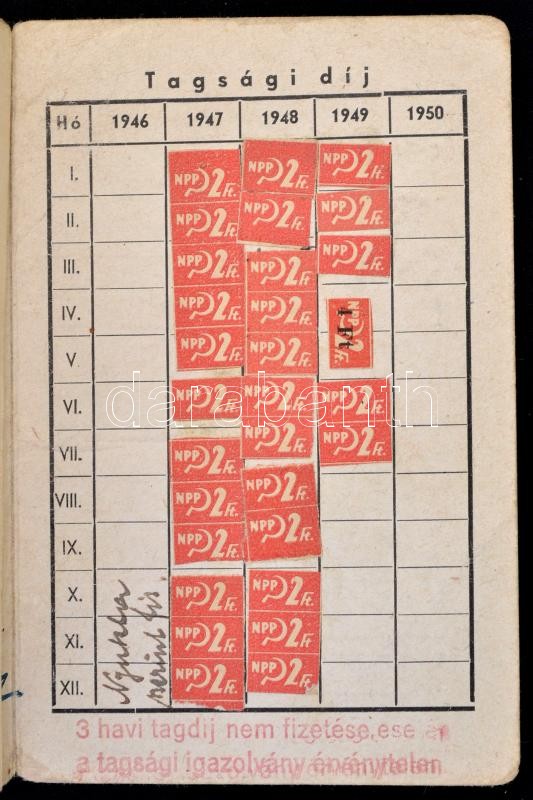 Tagsági díj
Hó 1946 1947 1948 1949 1950
I. NPP 2 Ft. NPP 2 Ft. NPP 2 Ft.
II. NPP 2 Ft. NPP 2 Ft. NPP 2 Ft.
III. NPP 2 Ft. NPP 2 Ft. NPP 2 Ft.
IV. NPP 2 Ft. NPP 2 Ft. NPP 2 Ft. 1 Ft
V. NPP 2 Ft. NPP 2 Ft.
VI. NPP 2 Ft. NPP 2 Ft. NPP 2 Ft.
darabanth
VII. NPP 2 Ft. NPP 2 Ft. NPP 2 Ft.
VIII. NPP 2 Ft. NPP 2 Ft.
IX. NPP 2 Ft. NPP 2 Ft.
X. NPP 2 Ft. NPP 2 Ft.
XI. NPP 2 Ft. NPP 2 Ft.
XII. NPP 2 Ft. NPP 2 Ft.
szerint fiz.
3 havi tagdíj nem fizetése ese én
a tagsági igazolvány érvénytelen